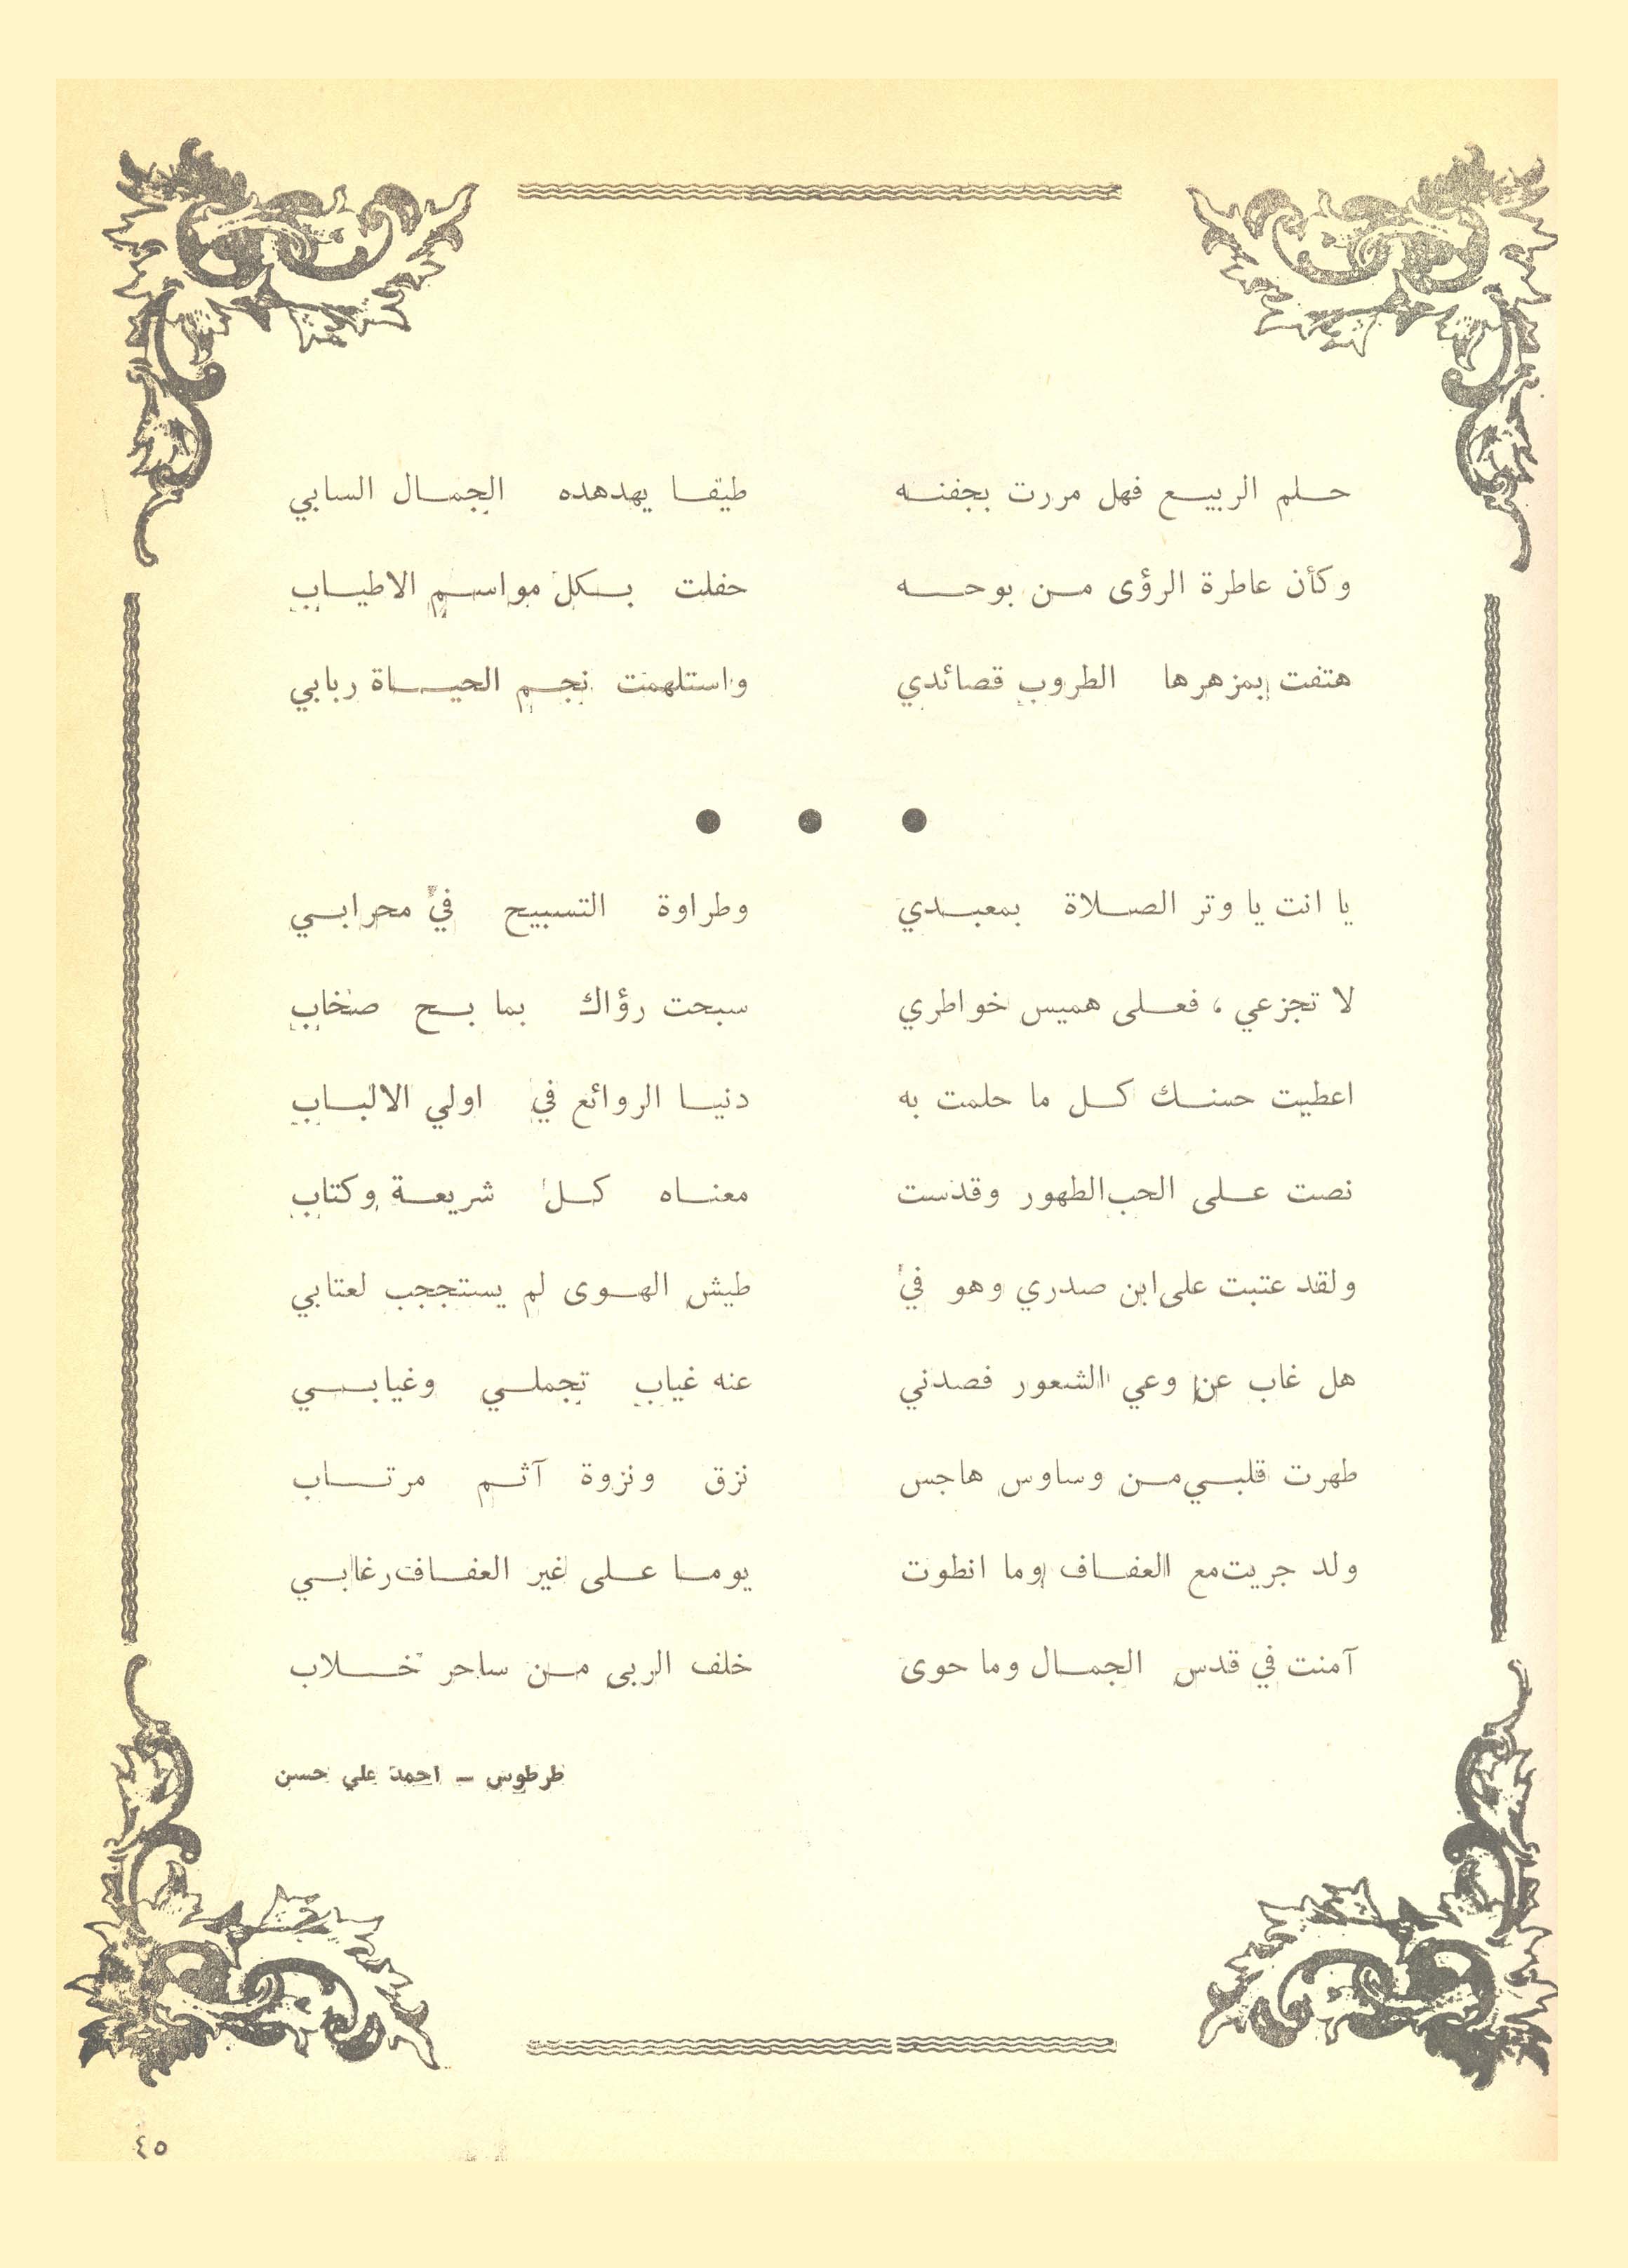 حلم الربيع فهل مررت بجفنه طيفا يهدهده الجمال السابي
وكأن عاطرة الرؤى من بوحه حفلت بكل مواسم الاطياب
هتفت بمزهرها الطروب قصائدي واستلهمت نجم الحياة ربابي
● ● ●
يا انت يا وتر الصلاة بمعبدي وطراوة التسبيح في محرابي
لا تجزعي ، فعلى هميس خواطري سبحت رؤاك بما بح صخاب
اعطيت حسنك كل ما حلمت به دنيا الروائع في اولي الالباب
نصت على الحب الطهور وقدست معناه كل شريعة وكتاب
ولقد عتبت على ابن صدري وهو في طيش الهوى لم يستججب لعتابي
هل غاب عن وعي الشعور فصدني عنه غياب تجملي وغيابي
طهرت قلبي من وساوس هاجس نزق ونزوة آثم مرتاب
ولد جريت مع العفاف وما انطوت يوما على غير العفاف رغابي
آمنت في قدس الجمال وما حوى خلف الربى من ساحر خلاب
طرطوس – احمد علي حسن
٤٥